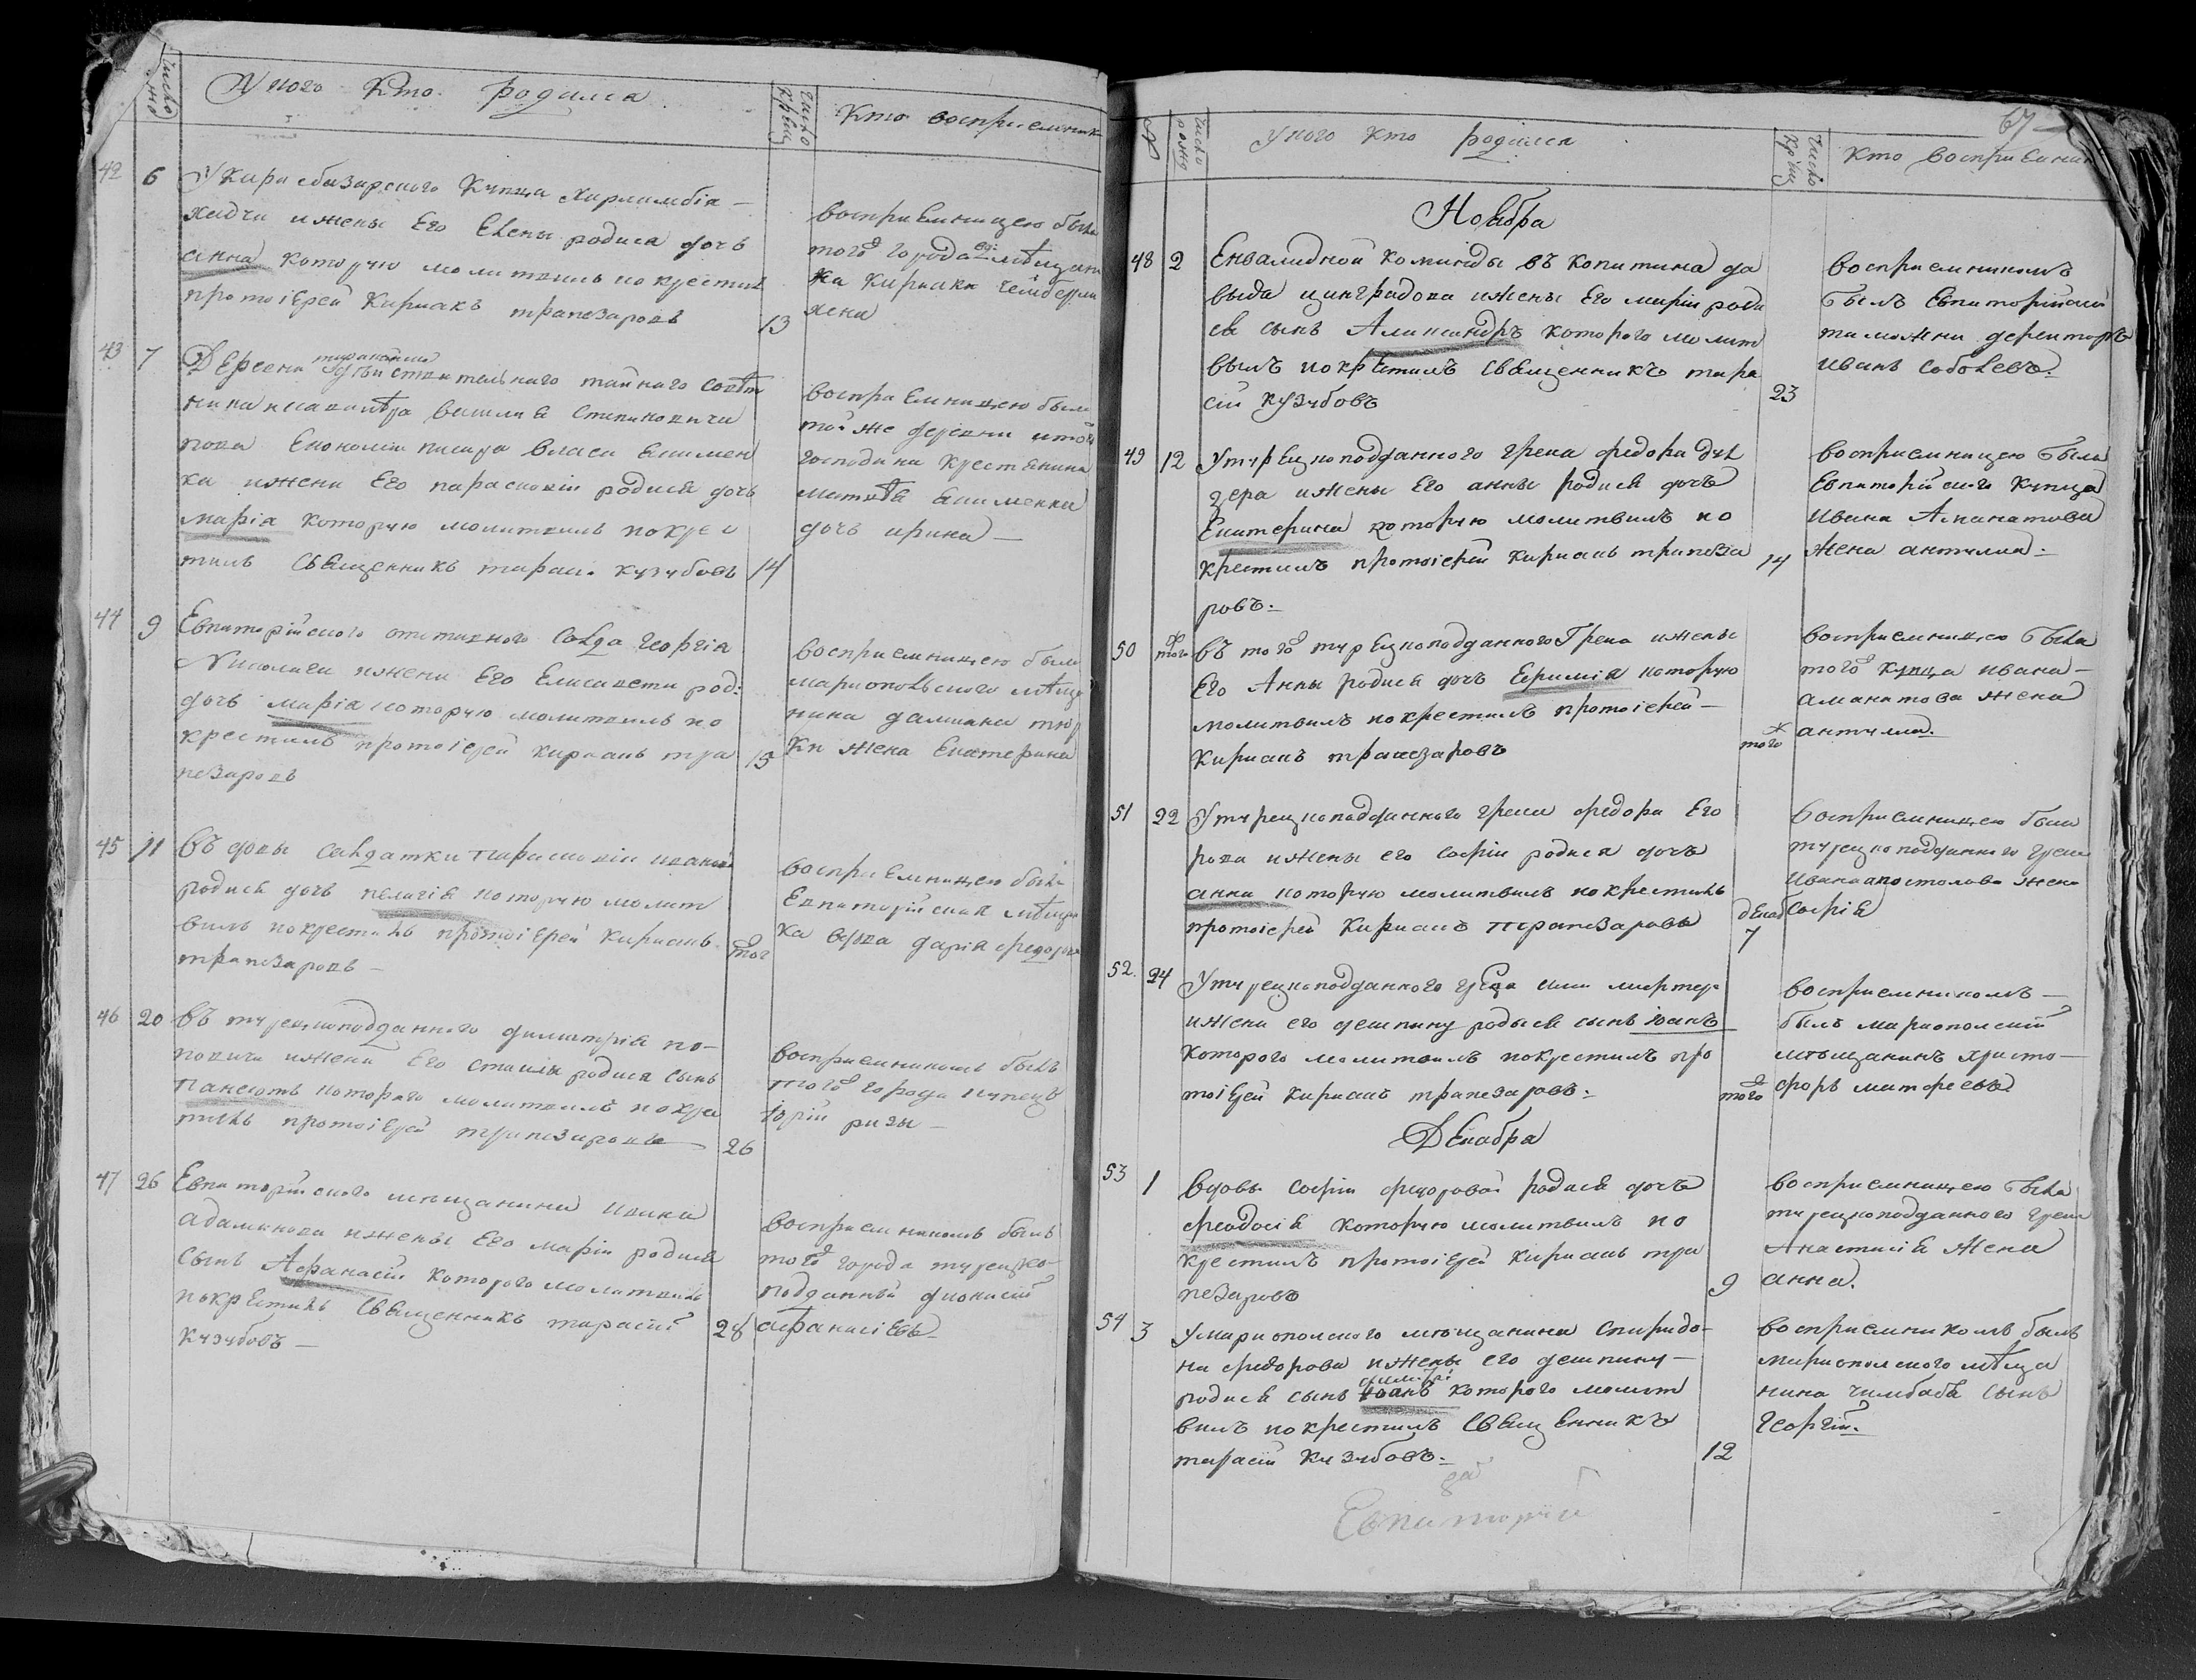 число
У кого кто родился
число крещ
Кто восприемник
42 6 У Кара сбазарского Купца Харламбія
хадчи и жены Его Елены родися дочь
анна которую молитвилъ и крестилъ
протоіерей Кириакъ трапезаровъ 13
восприемницею была
тогѡ города мѣщан
ка Кириаки
жена
43 7 Деревни
дѣйствительнаго тайнаго совѣт
ника и кавалѣра василія Степановича
попова Економіи писара власа Якимен
ка и жени Его параскевіи родися дочь
марія которую молитвилъ и крес
тилъ Священникъ тарасі Кузубовъ 14
восприемницею была
той же деревни и того
господина крестянина
матвѣя якименка
дочь ирина
44 9 Евпаторійского отставного Салда Георгія
Николаги и жени Его Елисавети род:
дочь марія которую молитвилъ и
крестилъ протоіерей кириакъ тра 13
пезаровъ
восприемницею была
мариополского мѣща
нина дамиана
ки жена Екатерина
45 11 въ довы салдатки параскевіи ивановой
родися дочь пелагія которую молит
вилъ и крестилъ протоіерей Кириакъ тог
трапезаровъ
восприемницею была
Евпаторійская мѣщан
ка вдова дарія федорова
46 20 въ турецкоподданного димитрія по
повича и жени Его родися сынъ
панаіотъ которого молитвилъ и крес
тилъ протоіерей трапезаровъ 26
восприемникомъ былъ
тогѡ города купецъ
Юрій ризы
47 26 Евпаторійского мѣщанина ивана
адаминова и жены Его маріи родися
сынъ Афанасій которого молитвилъ
и крѣстилъ Священникъ тарасій 28
Кузубовъ
восприемникомъ былъ
тогѡ города турецко
подданный дионисій
афанасіевъ
67
№
число рожд
У кого кто родился
число крещ
Кто восприемник
Ноября
48 2 Енвалидной команды въ Капитана да
выда цинградова и жены Его маріи роди
ся сынъ Аликсандръ которого молит
вилъ и крѣстилъ Священникъ тара
сій Кузубовъ 23
восприемникомъ
былъ Евпаторійской
таможни деректоръ
иванъ соболевъ
49 12 У турецкоподданного грека федора
зера и жены Его анны родися дочь
Екатерина которую молитвилъ и
крестилъ протоіерей кириакъ трапеза 14
ровъ
восприемницею была
Евпаторійского купца
ивана Аманатова
жена антулина
50 того въ тогѡ турецкоподданного Грека и жены
Его Анны родися дочь Ефимія которую
молитвилъ и крестилъ протоіерей
Кириакъ трапезаровъ того
восприемницею была
тогѡ купца ивана
аманатова жена
антулина
51 22 У турецкоподданного грека федора Его
рова и жены его софіи родися дочь
анна которую молитвилъ и крестилъ
протоіерей Кириакъ трапезаровъ декаб 7
восприемницею была
турецкоподданного грека
ивана апостолова жена
софія
52 24 У турецкоподданного грека
и жени его деспину родыся сынъ Іоанъ
которого молитвилъ и крестилъ про
тоіерей кириакъ трапезаровъ того
восприемникомъ
былъ мариополскій
мѣщанинъ христо
форъ матфеевъ
Декабра
53 1 вдовы софіи федоровой родися дочь
феодосія которую молитвилъ и
крестилъ протоіерей кириакъ тра
пезаровъ 9
восприемницею была
турецкоподданного грека
Анастасія жена
анна
54 3 У мариополского мѣщанина Спиридо
на федорова и жены его деспину
димитрій
родися сынъ Іоанъ которого молит
вилъ и крестилъ Священникъ
тарасій Кузубовъ 12
восприемникомъ былъ
мариополского мѣща
нина сынъ
Георгій
Евпаторій